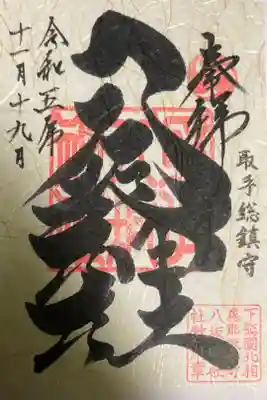 奉拝
取手総鎮守
八坂神社
令和五年
十一月十九日
下總國北相
八坂神社
社務所之章